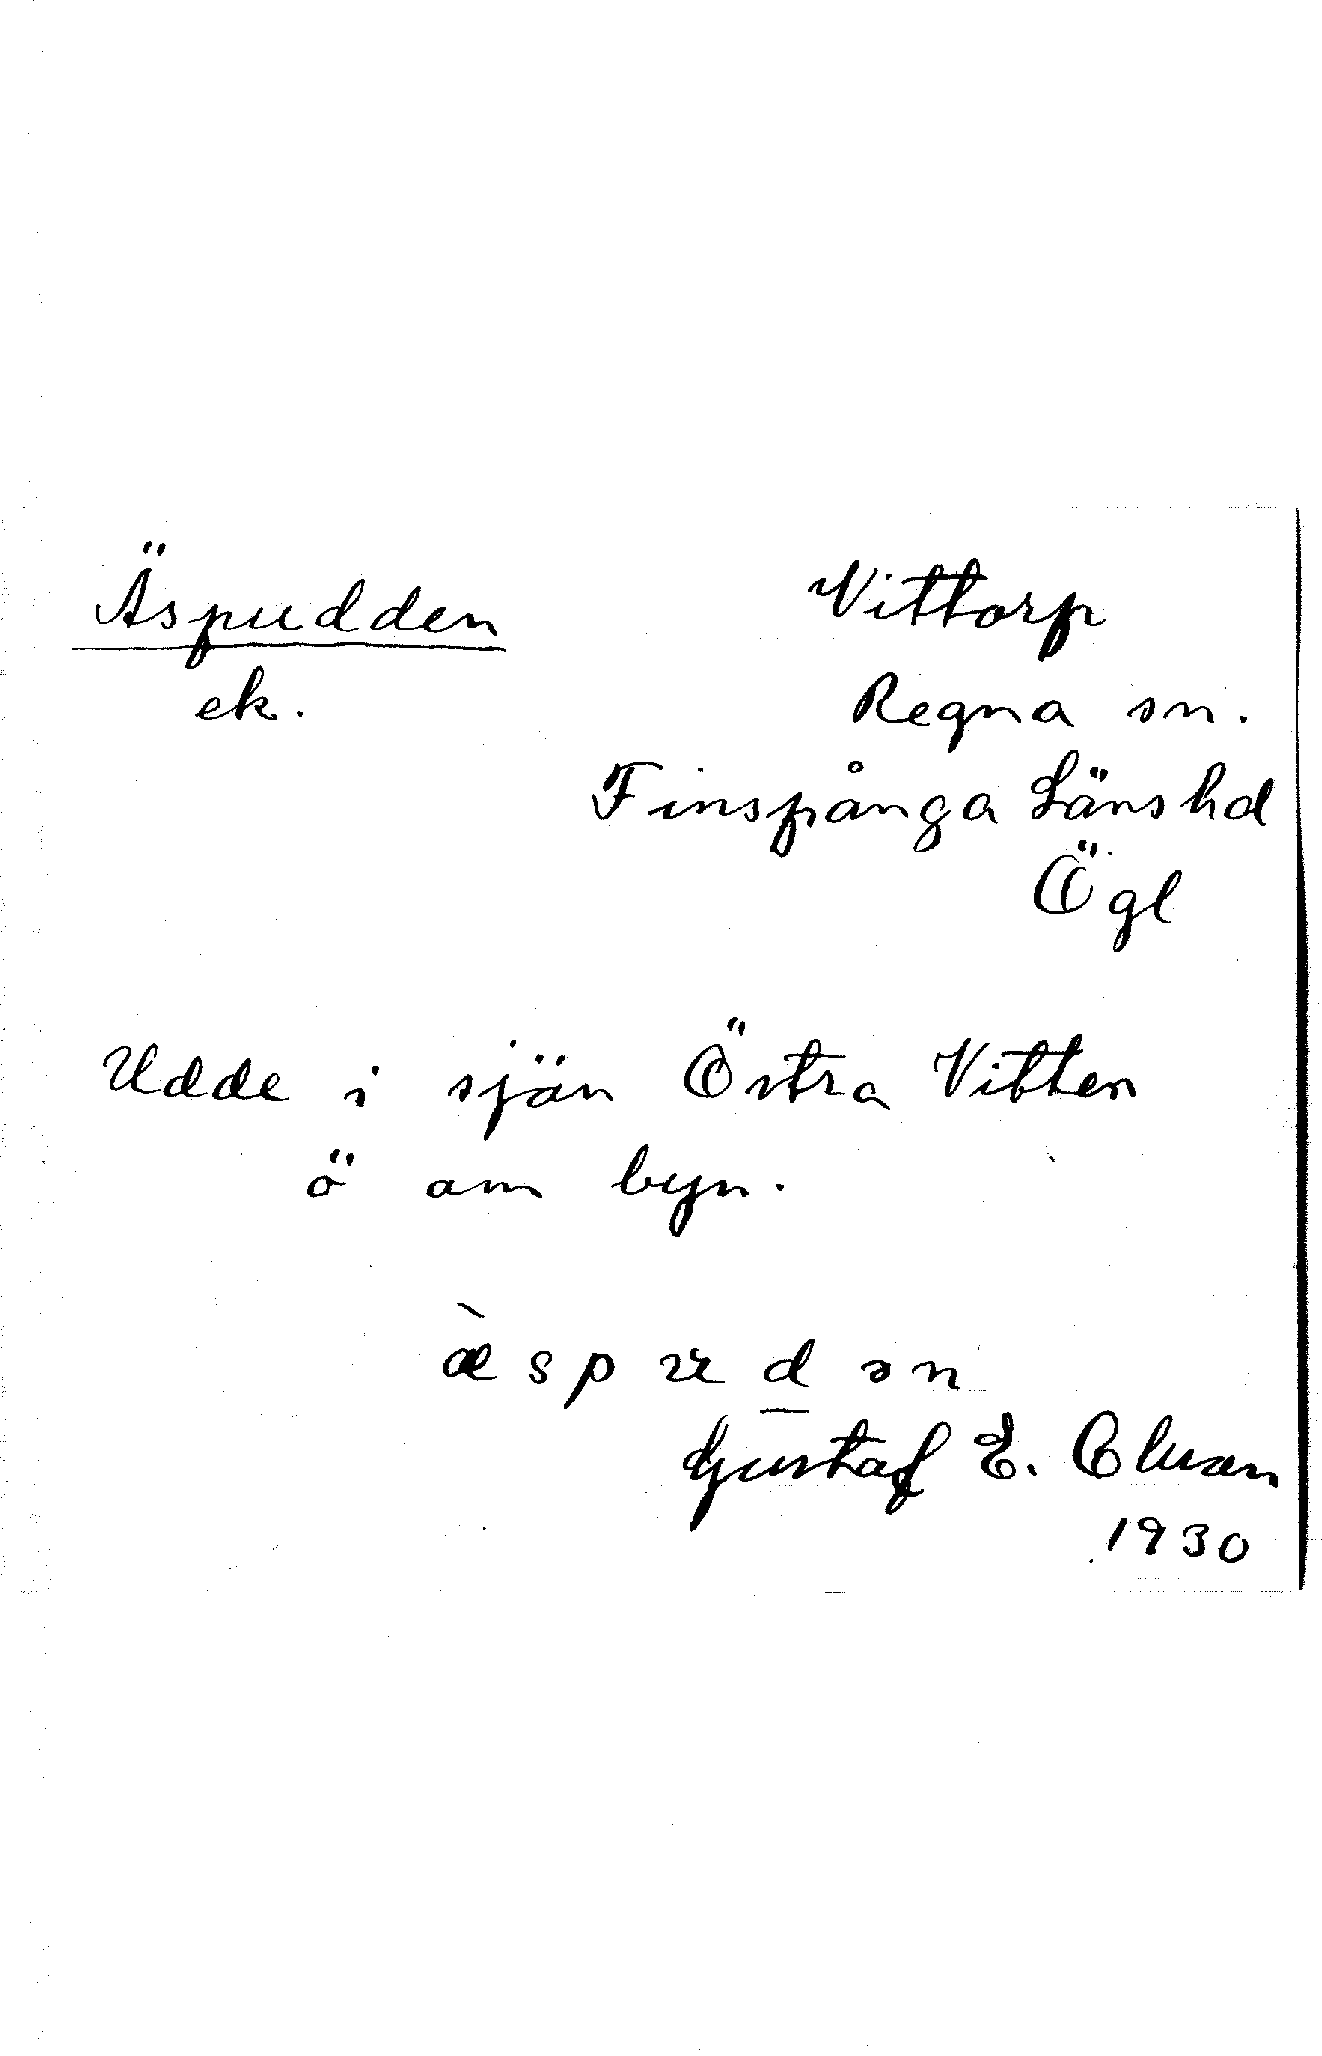 Äspudden
ek.
Vittorp
Regna sn.
Finspånga Länshd
Ögl
Udde i sjön Östra Vitten
ö om byn.
æ̀ s p u d̲ ə n
Gustaf E.
1930